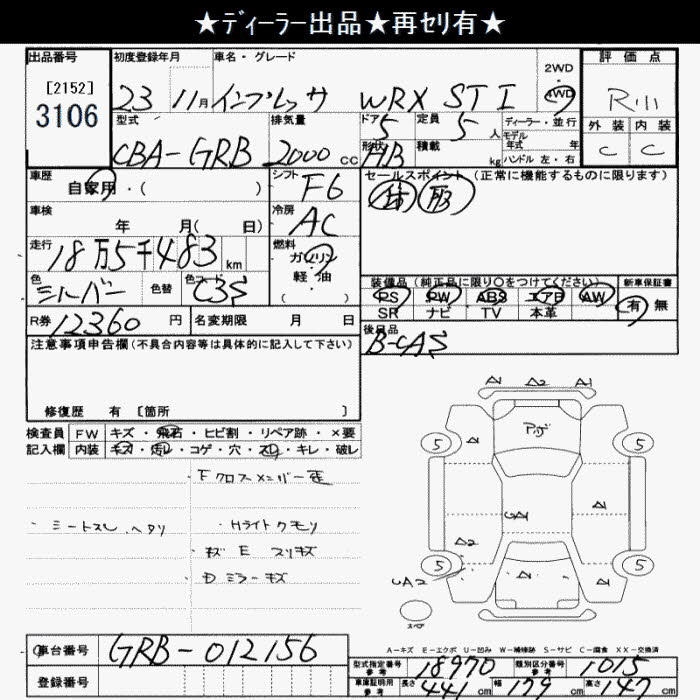 ★ディーラー出品★再セリ有★
出品番号 初度登録年月 車名・グレード 2WD・4WD 評価点
[2152]
3106 23 11月 インプレッサ WRX STI
型式 排気量 ドア 定員 ディーラー・並行 外装 内装
CBA-GRB 2000cc 5 5人 モデル年式 年 C C
形状 積載 ハンドル 左・右
HB kg
車歴 シフト セールスポイント (正常に機能するものに限ります)
自家用・( ) F6
車検 冷房
年 月( 日) AC
走行 燃料
18万5千483km ガソリン・軽油 ( )
色 色替 色コード
シルバー C3S
装備品 (純正品に限り〇をつけてください) 新車保証書
PS PW ABS エアB AW 有 無
SR ナビ TV 本革
R券 12360円 名変期限 月 日 後日品
B-CAS
注意事項申告欄(不具合内容等は具体的に記入して下さい)
修復歴 有 [箇所 ]
検査員 FW キズ・飛石・ヒビ割・リペア跡・×要
記入欄 内装 キズ・汚レ・コゲ・穴・スレ・キレ・破レ
・Fクロスメンバー
・シートスレ、ヘタリ ・Hライトクモリ
キズ E スリキズ
ミラーキズ
A1 A2 A1
5 5
A A
A2 A
5 5
CA2 A A
スペア
A-キズ E-エクボ U-凹み W-補修跡 S-サビ C-腐食 XX-交換済
車台番号 GRB-012156
型式指定番号 参考 18970 類別区分番号 参考 1015
登録番号 車庫証明用 参考 長さ 441cm 幅 179cm 高さ 147cm